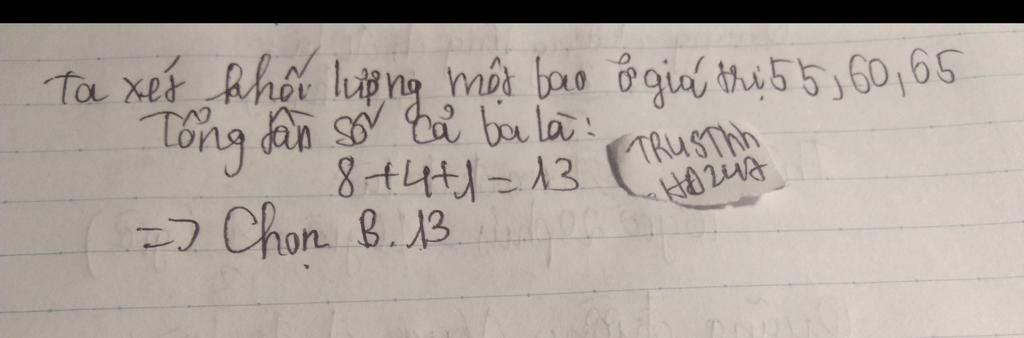 Ta xét khối lượng một bao ở giá trị 55, 60, 65
Tổng tần số cả ba là:
8 + 4 + 1 = 13
TRUSTNN
HD247
=> Chọn B. 13